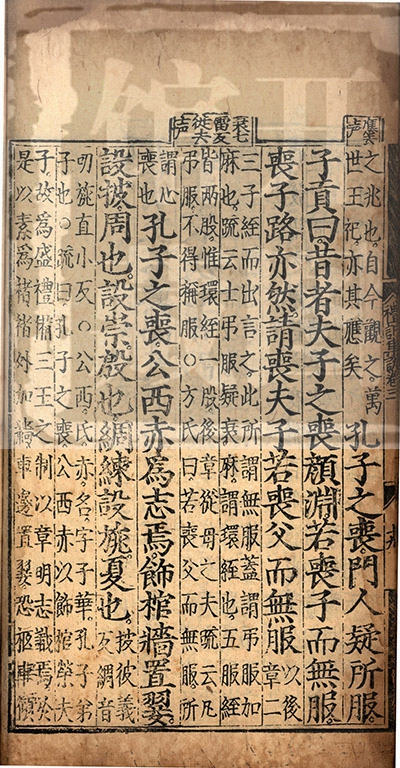 應去声
之兆也自今觀之萬
世王祀亦其應矣
孔子之喪門人疑所服
子貢曰昔者夫子之喪顏淵若喪子而無服
喪子路亦然請喪夫子若喪父而無服
以後
章二
衰七
雷反
從去
声
三子絰而出言之此所謂無服蓋謂弔服加
麻也疏云士弔服疑衰麻謂環絰也五服絰
皆兩股惟環絰一股後章從母之夫疏云凡
弔服不得稱服○方氏曰若喪父而無服所
謂心
喪也
孔子之喪公西赤為志焉飾棺牆置翣
設披周也設崇殷也綢練設旐夏也
披彼義
反綢音
叨旐直小反○公西氏赤名字子華孔子弟
子也○疏曰孔子之喪公西赤以飾棺榮夫
子故為盛禮備三王之制以章明志識焉於
是以素為褚褚外加牆車邊置翣恐柩車傾